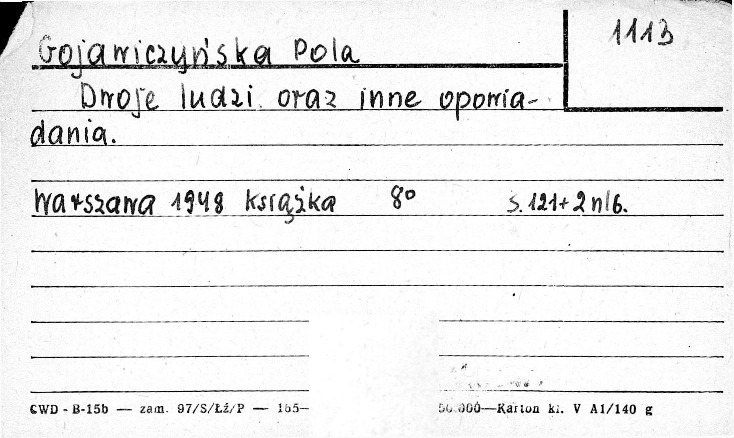 1113
Gojawiczyńska Pola
Dwoje ludzi oraz inne opowia-
dania.
Warszawa 1948 książka 8° s. 121+2 nlb.
CWD - B-15b — zam. 97/S/Łź/P — 165— 50.000—Karton kl. V A1/140 g